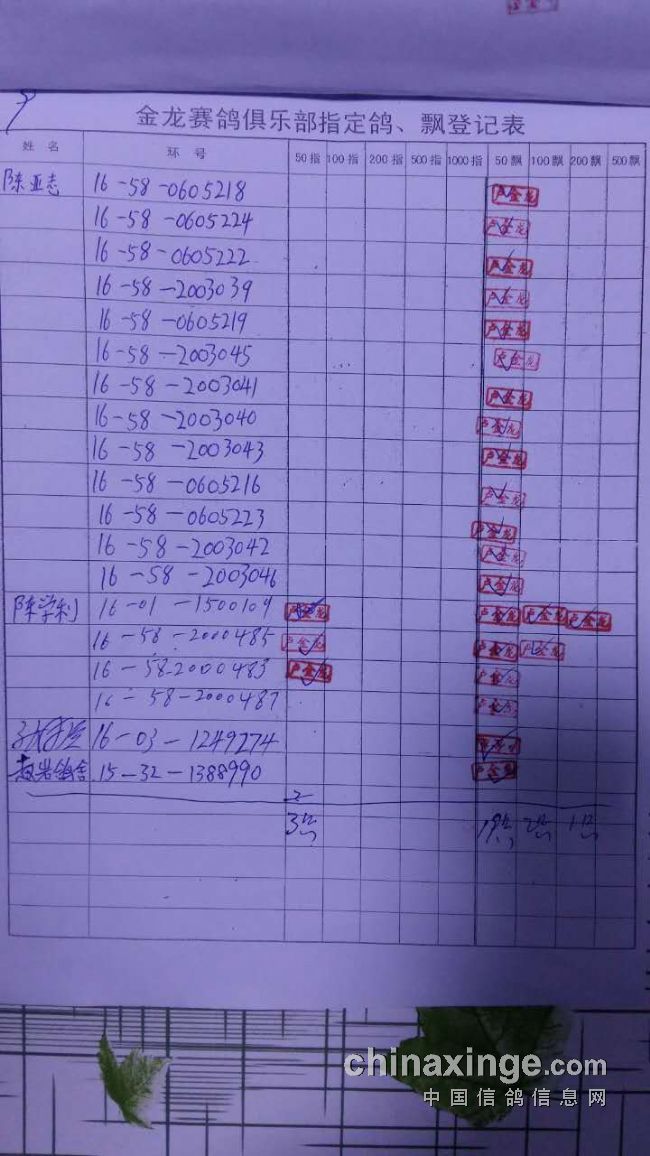 金龙赛鸽俱乐部指定鸽、飘登记表
姓 名 环 号 50指 100指 200指 500指 1000指 50飘 100飘 200飘 500飘
陈亚志 16-58-0605218 卢金龙
16-58-0605224 卢金龙
16-58-0605222 卢金龙
16-58-2003039 卢金龙
16-58-0605219 卢金龙
16-58-2003045 卢金龙
16-58-2003041 卢金龙
16-58-2003040 卢金龙
16-58-2003043 卢金龙
16-58-0605216 卢金龙
16-58-0605223 卢金龙
16-58-2003042 卢金龙
16-58-2003046 卢金龙
陈学利 16-01-1500109 卢金龙 卢金龙 卢金龙 卢金龙
16-58-2000485 卢金龙 卢金龙 卢金龙
16-58-2000483 卢金龙 卢金龙
16-58-2000487 卢金龙
16-03-1249274
15-32-1388990 卢金龙
3羽 19羽 2羽 1羽
chinaxinge.com
中国信鸽信息网